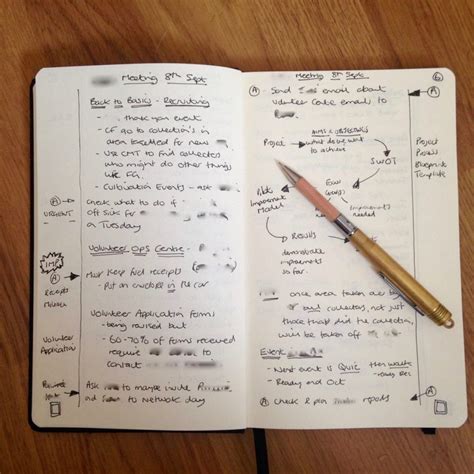 Meeting 8th Sept.
Back to Basics - Recruiting
- thank you event
- CF go to collection's in
area travelled for new
- Use CMT to find collectors
who might do other things
like FG.
- Cultivation Events - ask
A
URGENT
Check what to do if
off sick for
a Tuesday
Volunteer Ops Centre -
IMP
A
Receipts
Must Keep fuel receipts
- Put an envelope in the car
Volunteer
Application
Volunteer Application forms
- being revised but
- 60-70% of forms received
require to
contact
Ask to maybe invite
and to Network day
Meeting 8th Sept.
6
A - Send email about
Volunteer Code email to
Project
AIMS & OBJECTIVES
what do we want
to achieve
SWOT
Project
Blueprint
Template
Improvement
Model
Improvements
needed
RESULTS
demonstrate
improvements
so far.
once area taken are by
collectors, not just
those that did the collection,
will be taken off
Event
- Next event is Quiz then
- Ready and Oct
A check & plan reports
A